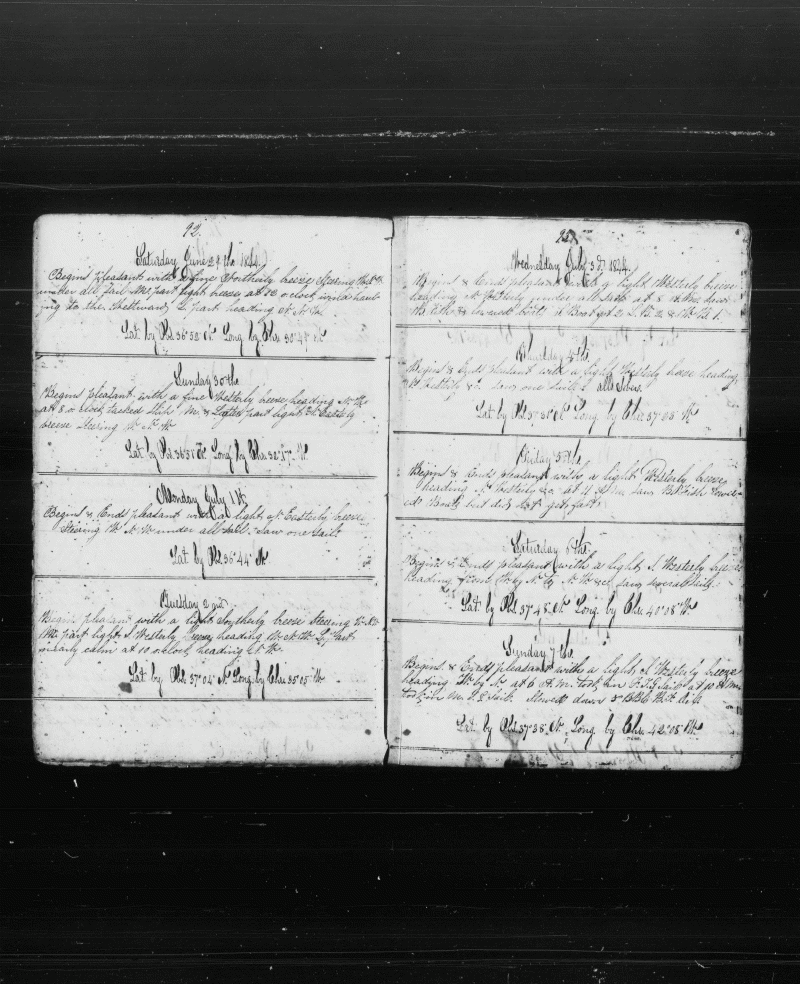 92.
Saturday June 29th 1844
Begins pleasant with a fine Northerly breeze Steering
under all sail Mid part light breeze at 10 oclock wind haul
ing to the Westward L. part heading N. W.
Lat by Obs 36°58' N. Long by Chr. 30°41' W.
Sunday 30th
Begins pleasant with a fine Westerly breeze heading N. W.
at 8 oclock tacked Ship M. & Latter part light Easterly
breeze Steering W. N. W.
Lat by Obs 36°51' N. Long by Chr. 32°17' W.
Monday July 1st
Begins & Ends pleasant with a light Easterly breeze
Steering W. N. W under all sail. Saw one sail
Lat by Obs 36°44' N.
Tuesday 2nd
Begins pleasant with a light Southerly breeze Steering
Mid part light S. Westerly breeze heading W. N. W. L. Part
nearly calm at 10 oclock heading N. W.
Lat by Obs 37°04' N. Long by Chr. 35°05' W.
93
Wednesday July 3d 1844.
Begins & Ends pleasant with a light Westerly breeze
heading N. Westerly under all sail at 8 A.M. saw
& lowered boats
Thursday 4th
Begins & Ends pleasant with a light Westerly breeze heading
N. Westerly &c. saw one sail
Lat by Obs 37°31' N. Long by Chr. 37°05' W
Friday 5th
Begins & Ends pleasant with a light Westerly breeze
heading N. Westerly &c. at 11 A.M. saw Bl. Fish lower
ed Boats but did not get fast
Saturday 6th
Begins & Ends pleasant with a light S. Westerly breeze
heading from W. by N. to N. W. &c. saw several sails.
Lat by Obs 37°45' N. Long. by Chr. 40°08' W.
Sunday 7th
Begins & Ends pleasant with a light S. Westerly breeze
heading W. by N. at 6 A.M. took in F. T. G. Sail at 10 A.M.
took in M. T. G. Sail. Stowed down
Lat. by Obs 37°38' N. Long. by Chr. 42°08' W.